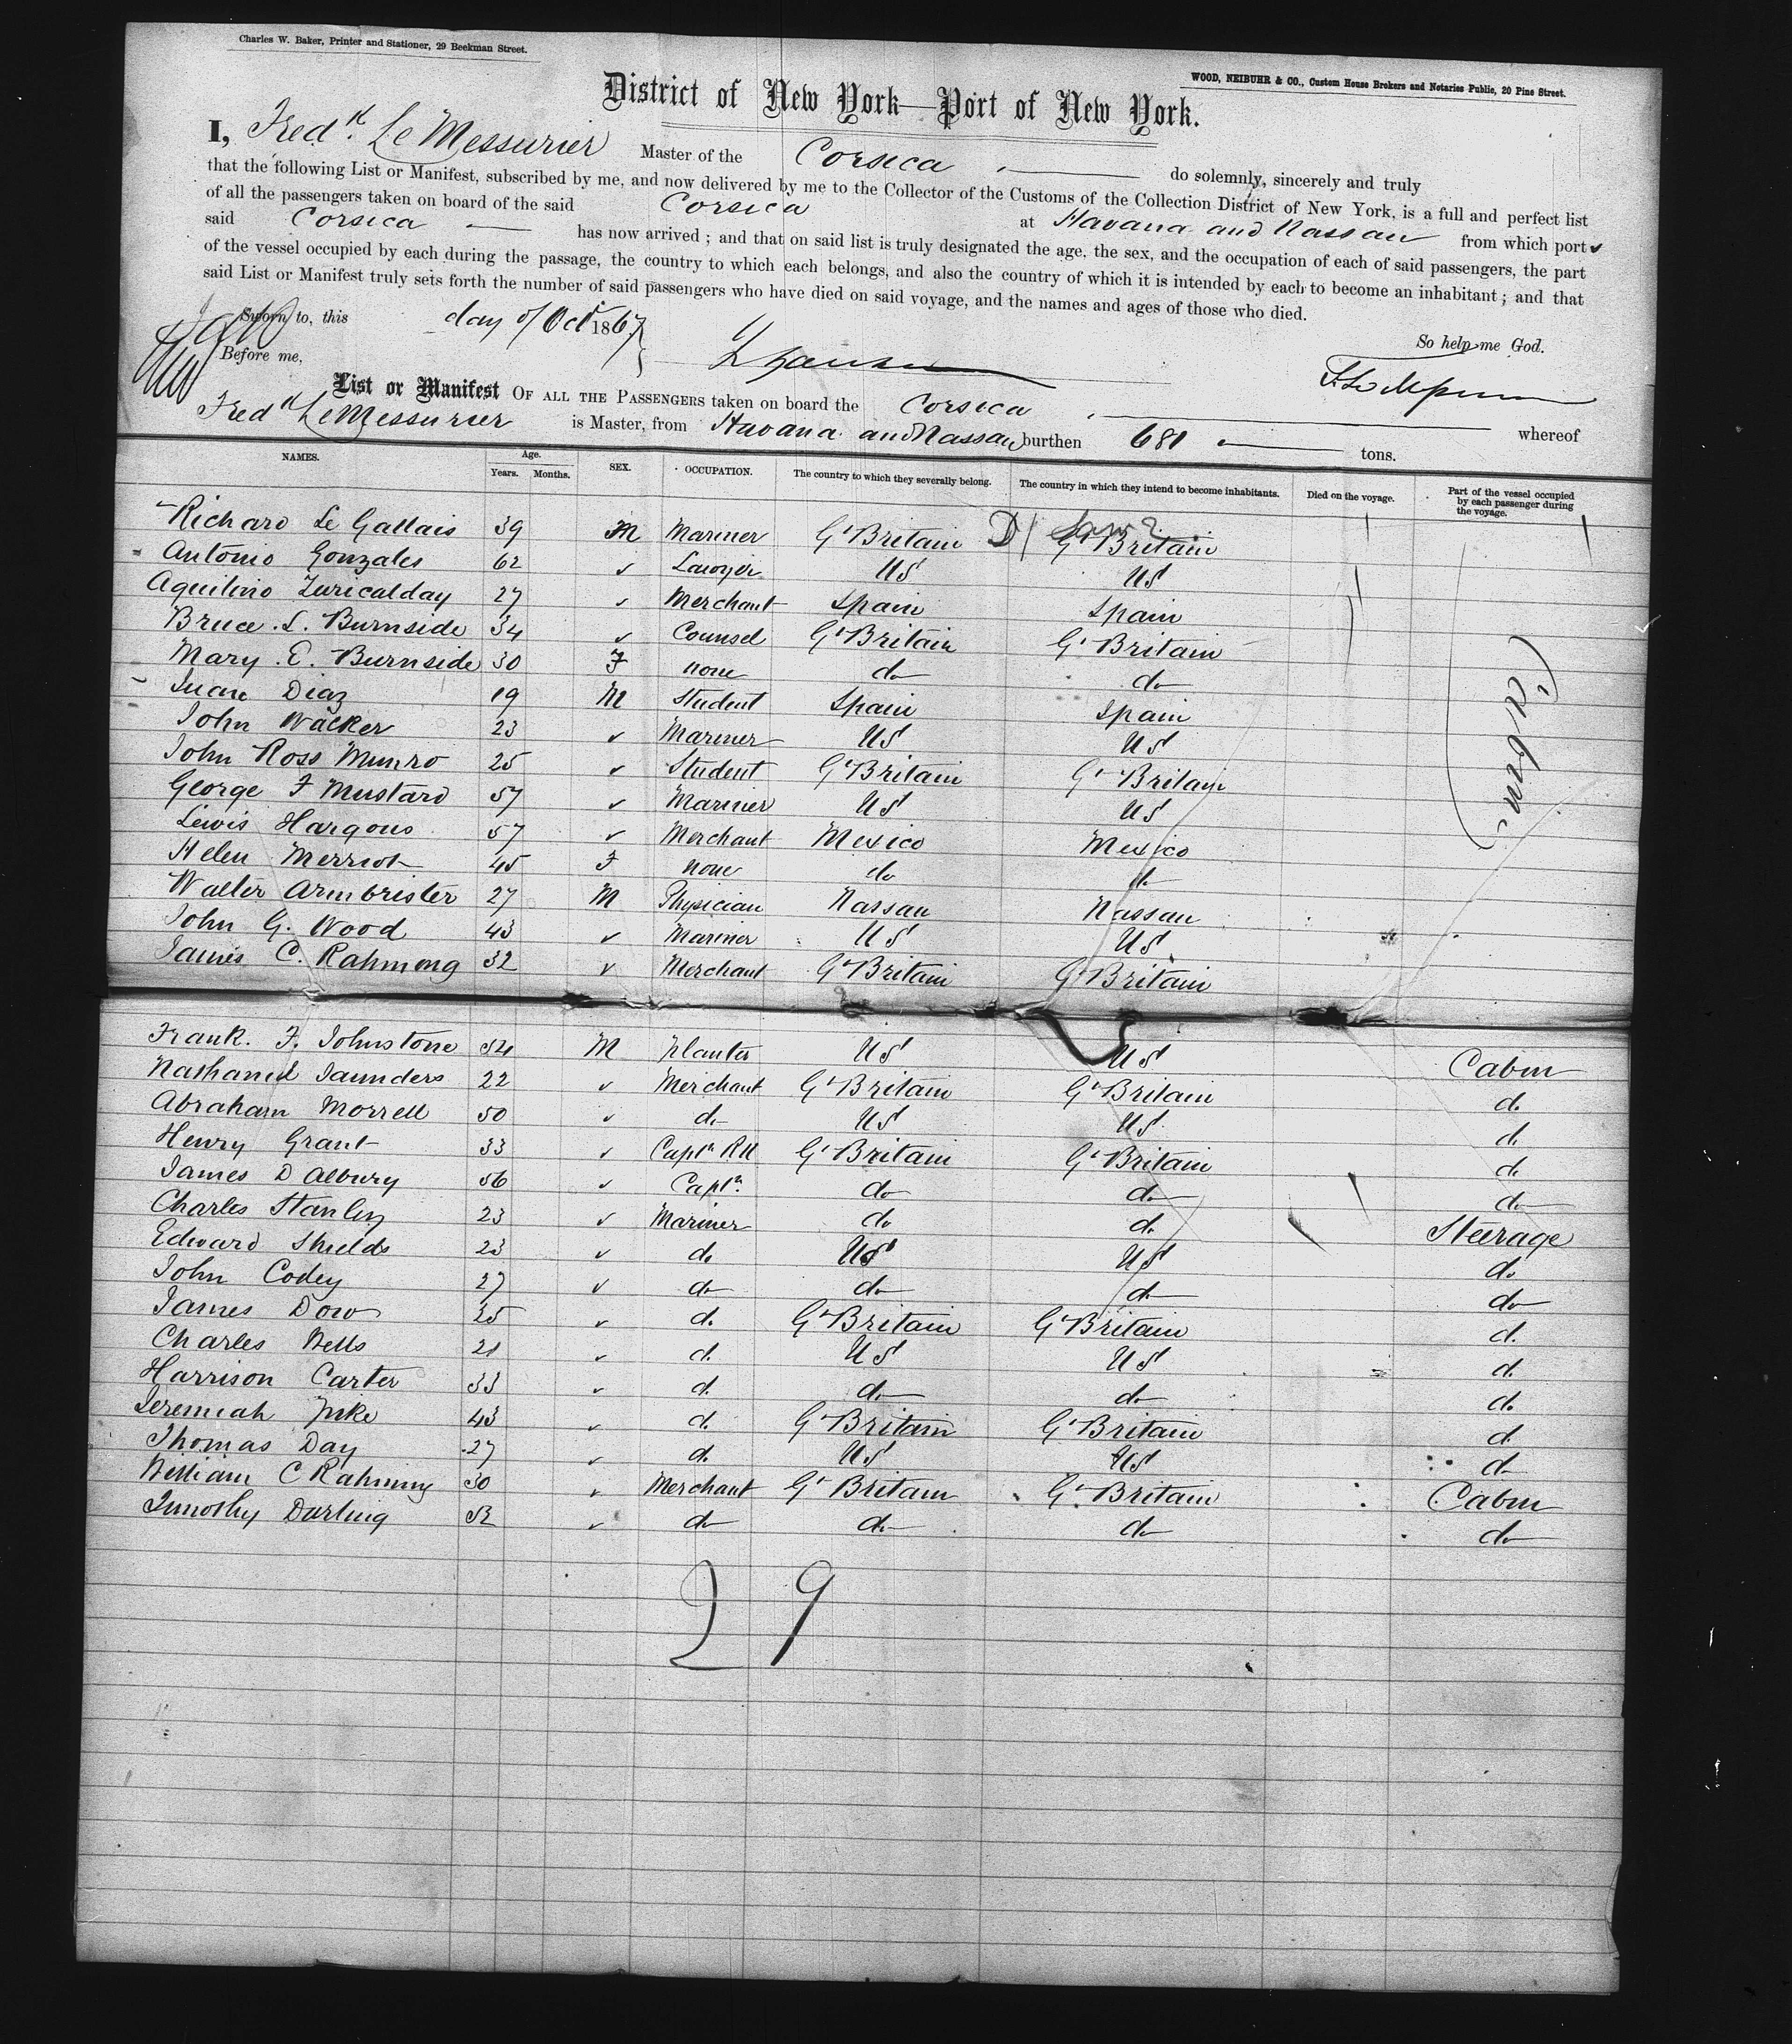 Charles W. Baker, Printer and Stationer, 29 Beekman Street.
WOOD, NEIBUHR & CO., Custom House Brokers and Notaries Public, 20 Pine Street.
District of New York—Port of New York.
I, Fredk. Le Messurier Master of the Corsica do solemnly, sincerely and truly
that the following List or Manifest, subscribed by me, and now delivered by me to the Collector of the Customs of the Collection District of New York, is a full and perfect list
of all the passengers taken on board of the said Corsica at Havana and Nassau from which ports
said Corsica has now arrived; and that on said list is truly designated the age, the sex, and the occupation of each of said passengers, the part
of the vessel occupied by each during the passage, the country to which each belongs, and also the country of which it is intended by each to become an inhabitant; and that
said List or Manifest truly sets forth the number of said passengers who have died on said voyage, and the names and ages of those who died.
Sworn to, this day of Oct 1867
So help me God.
Before me,
List or Manifest OF ALL THE PASSENGERS taken on board the Corsica whereof
Fredk Le Messurier is Master, from Havana and Nassau burthen 681 tons.
NAMES. Age. Years. Months. SEX. OCCUPATION. The country to which they severally belong. The country in which they intend to become inhabitants. Died on the voyage. Part of the vessel occupied by each passenger during the voyage.
Richard Le Gallais 39 M Mariner Gt Britain Gt Britain
Antonio Gonzales 62 ✓ Lawyer US US
Aquilino Zuricalday 27 ✓ Merchant Spain Spain
Bruce. L. Burnside 34 ✓ Counsel Gt Britain Gt Britain
Mary. E. Burnside 30 F none do do
Juan Diaz 19 M Student Spain Spain
John Walker 23 ✓ Mariner US US
John Ross Munro 25 ✓ Student Gt Britain Gt Britain
George F Mustard 57 ✓ Mariner US US
Lewis Hargous 57 ✓ Merchant Mexico Mexico
Helen Merriot 45 F none do do
Walter Armbrister 27 M Physician Nassau Nassau
John G. Wood 43 ✓ Mariner US US
James C. Rahmong 32 ✓ Merchant Gt Britain Gt Britain
Cabin
Frank. F. Johnstone 34 M Planter US US Cabin
Nathaniel Saunders 22 ✓ Merchant Gt Britain Gt Britain do
Abraham Morrell 50 ✓ do US US do
Henry Grant 33 ✓ Captn RN Gt Britain Gt Britain do
James D Albury 56 ✓ Captn. do do do
Charles Stanley 23 ✓ Mariner do do Steerage
Edward Shields 23 ✓ do US US do
John Codey 27 ✓ do do do do
James Dow 35 ✓ do Gt Britain Gt Britain do
Charles Wells 21 ✓ do US US do
Harrison Carter 33 ✓ do do do do
Jeremiah Pike 43 ✓ do Gt Britain Gt Britain do
Thomas Day 27 ✓ do US US do
William C Rahming 30 ✓ Merchant Gt Britain Gt Britain Cabin
Timothy Darling 52 ✓ do do do do
29